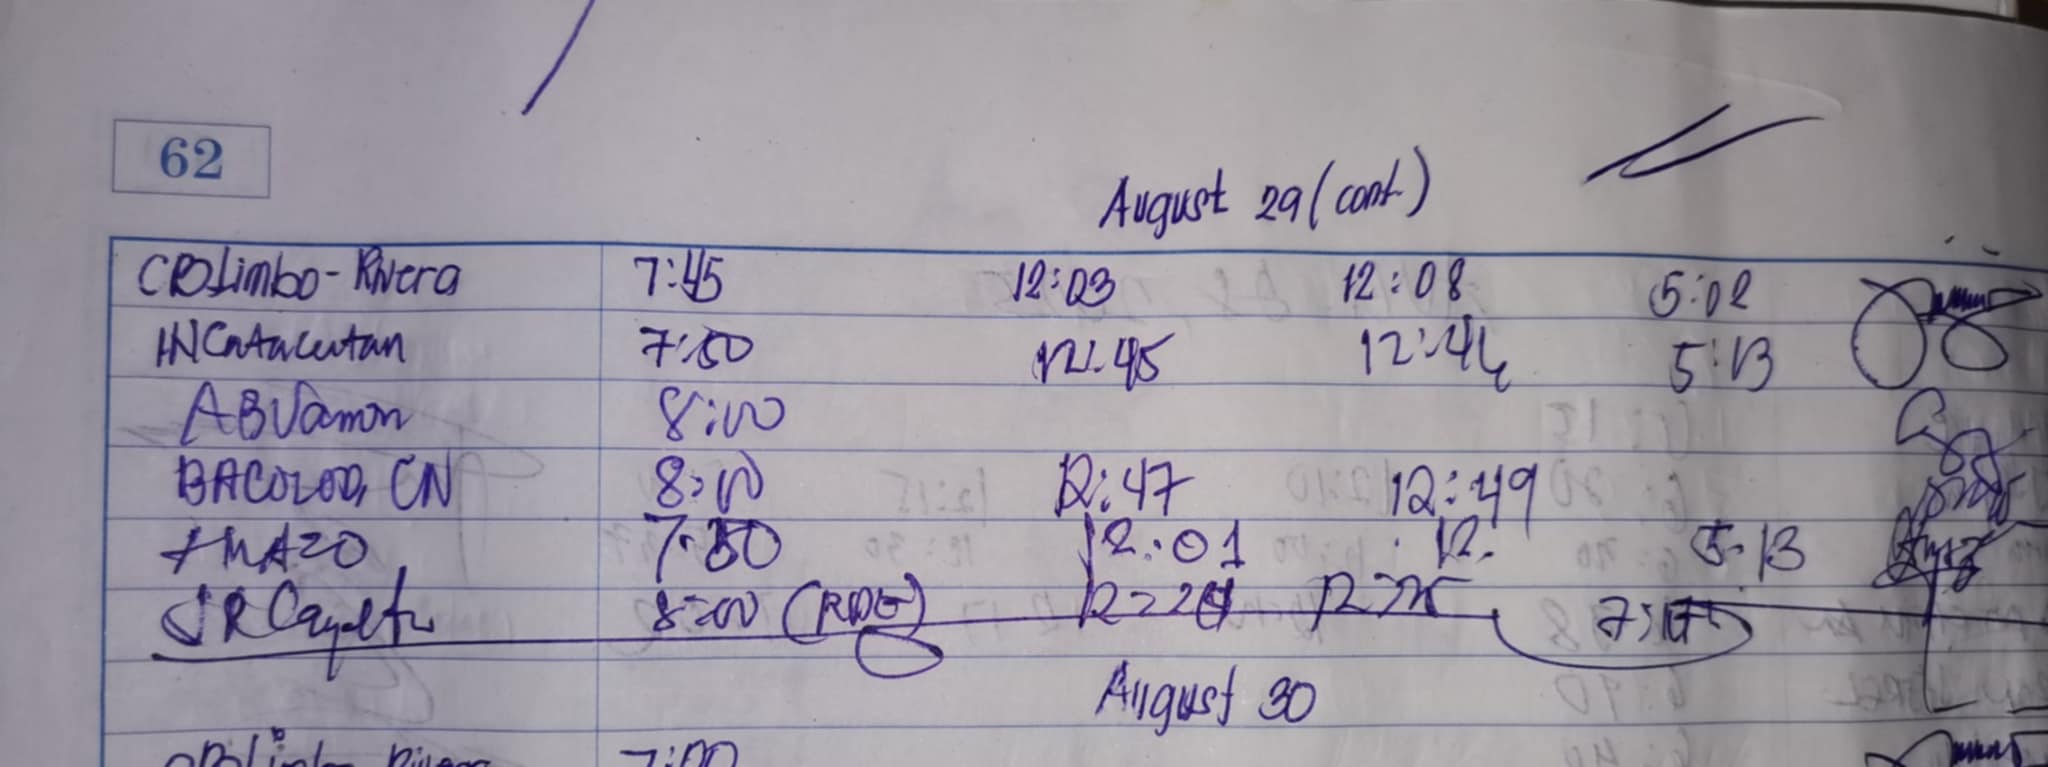 62
August 29 (cont.)
CBLimbo-Rivera 7:45 12:03 12:08 5:02
HNCatacutan 7:50 12:45 12:46 5:13
ABVamon 8:00
BACOLOD, CN 8:00 12:47 12:49
7:50 12:01 12: 5:13
JR 8:00 7:17
August 30
7:00